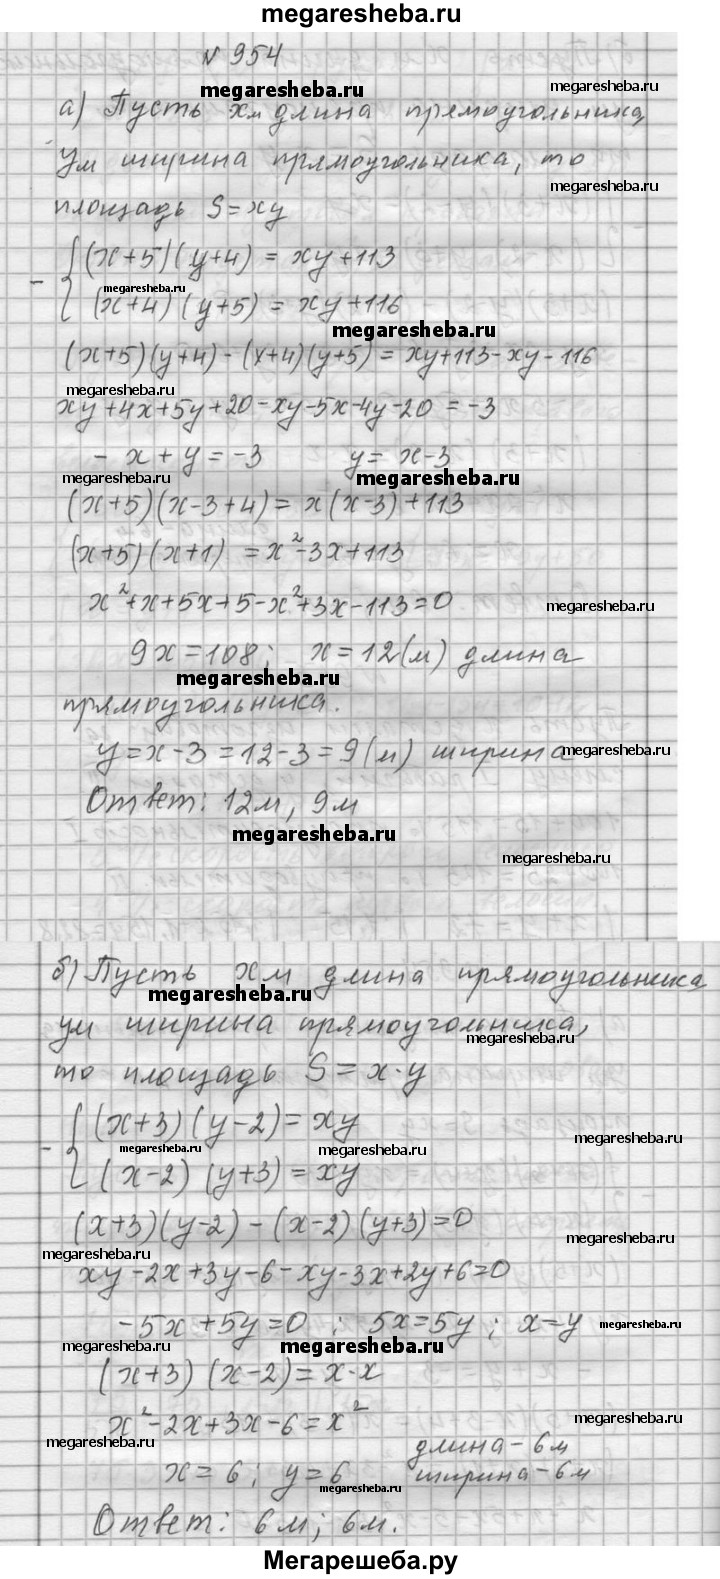 megaresheba.ru
№ 954
megaresheba.ru
megaresheba.ru
а) Пусть xм длина прямоугольника,
yм ширина прямоугольника, то
megaresheba.ru
площадь S=xy
(x+5)(y+4) = xy+113
megaresheba.ru
- { (x+4)(y+5) = xy+116
megaresheba.ru
(x+5)(y+4)-(x+4)(y+5) = xy+113-xy-116
megaresheba.ru
xy+4x+5y+20-xy-5x-4y-20 = -3
- x+y = -3 y = x-3
megaresheba.ru megaresheba.ru
(x+5)(x-3+4) = x(x-3)+113
(x+5)(x+1) = x²-3x+113
x²+x+5x+5-x²+3x-113=0
megaresheba.ru
9x=108; x=12(м) длина
megaresheba.ru
прямоугольника.
y=x-3=12-3=9(м) ширина
megaresheba.ru
Ответ: 12м, 9м
megaresheba.ru
megaresheba.ru
б) Пусть xм длина прямоугольника
megaresheba.ru
yм ширина прямоугольника,
megaresheba.ru
то площадь S=x·y
(x+3)(y-2)=xy
megaresheba.ru
megaresheba.ru megaresheba.ru
- { (x-2)(y+3)=xy
(x+3)(y-2)-(x-2)(y+3)=0
megaresheba.ru
megaresheba.ru
xy-2x+3y-6-xy-3x+2y+6=0
-5x+5y=0; 5x=5y; x=y
megaresheba.ru
megaresheba.ru megaresheba.ru
(x+3)(x-2)=x·x
x²-2x+3x-6=x²
megaresheba.ru
megaresheba.ru
длина-6м
x=6; y=6 ширина-6м
megaresheba.ru
megaresheba.ru
Ответ: 6м; 6м.
Мегарешеба.ру